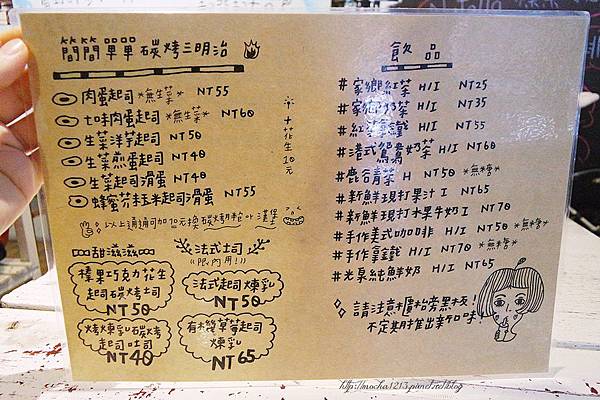 簡簡單單碳烤三明治
肉蛋起司 *無生菜* NT55
七味肉蛋起司 *無生菜* NT60
生菜洋芋起司 NT50
生菜煎蛋起司 NT40
生菜起司滑蛋 NT40
蜂蜜芥末起司滑蛋 NT55
※+花生10元
以上通通可加10元換碳烤棺or漢堡
甜滋滋
榛果巧克力花生
起司碳烤土司
NT50
烤煉乳碳烤
起司吐司
NT40
法式土司
((限內用!))
法式起司煉乳
NT50
有機草莓起司
煉乳
NT65
飲品
#家鄉紅茶 H/I NT25
#家鄉奶茶 H/I NT35
#紅茶拿鐵 H/I NT55
#港式鴛鴦奶茶 H/I NT60
#鹿谷青茶 H NT50 *無糖*
#新鮮現打果汁 I NT65
#新鮮現打水果牛奶 I NT70
#手作美式咖啡 H/I NT50 *無糖*
#手作拿鐵 H/I NT70 *無糖*
#光泉純鮮奶 H/I NT65
請注意櫃檯旁黑板!
不定期推出新口味!
http://mocha1213.pixnet.net/blog